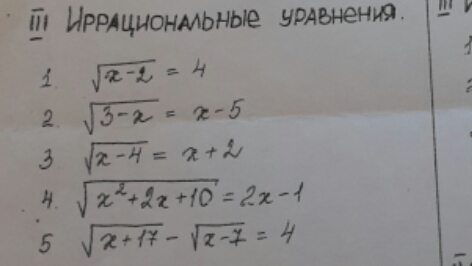 III Иррациональные уравнения.
1. √(x-2) = 4
2. √(3-x) = x-5
3 √(x-4) = x+2
4. √(x²+2x+10) = 2x-1
5 √(x+17) - √(x-7) = 4
III
1